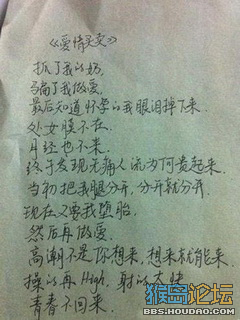 《爱情买卖》
抓了我的奶,
与骗了我做爱,
最后知道怀孕的我眼泪掉下来.
处女膜不在.
月经也不来.
终于发现无痛人流为何贵起来.
当初把我腿分开,分开就分开.
现在又要我堕胎.
然后再做爱.
高潮不是你想来,想来就能来.
操的再High,射的太快
青春不回来.
猴岛论坛
BBS.HOUDAO.COM